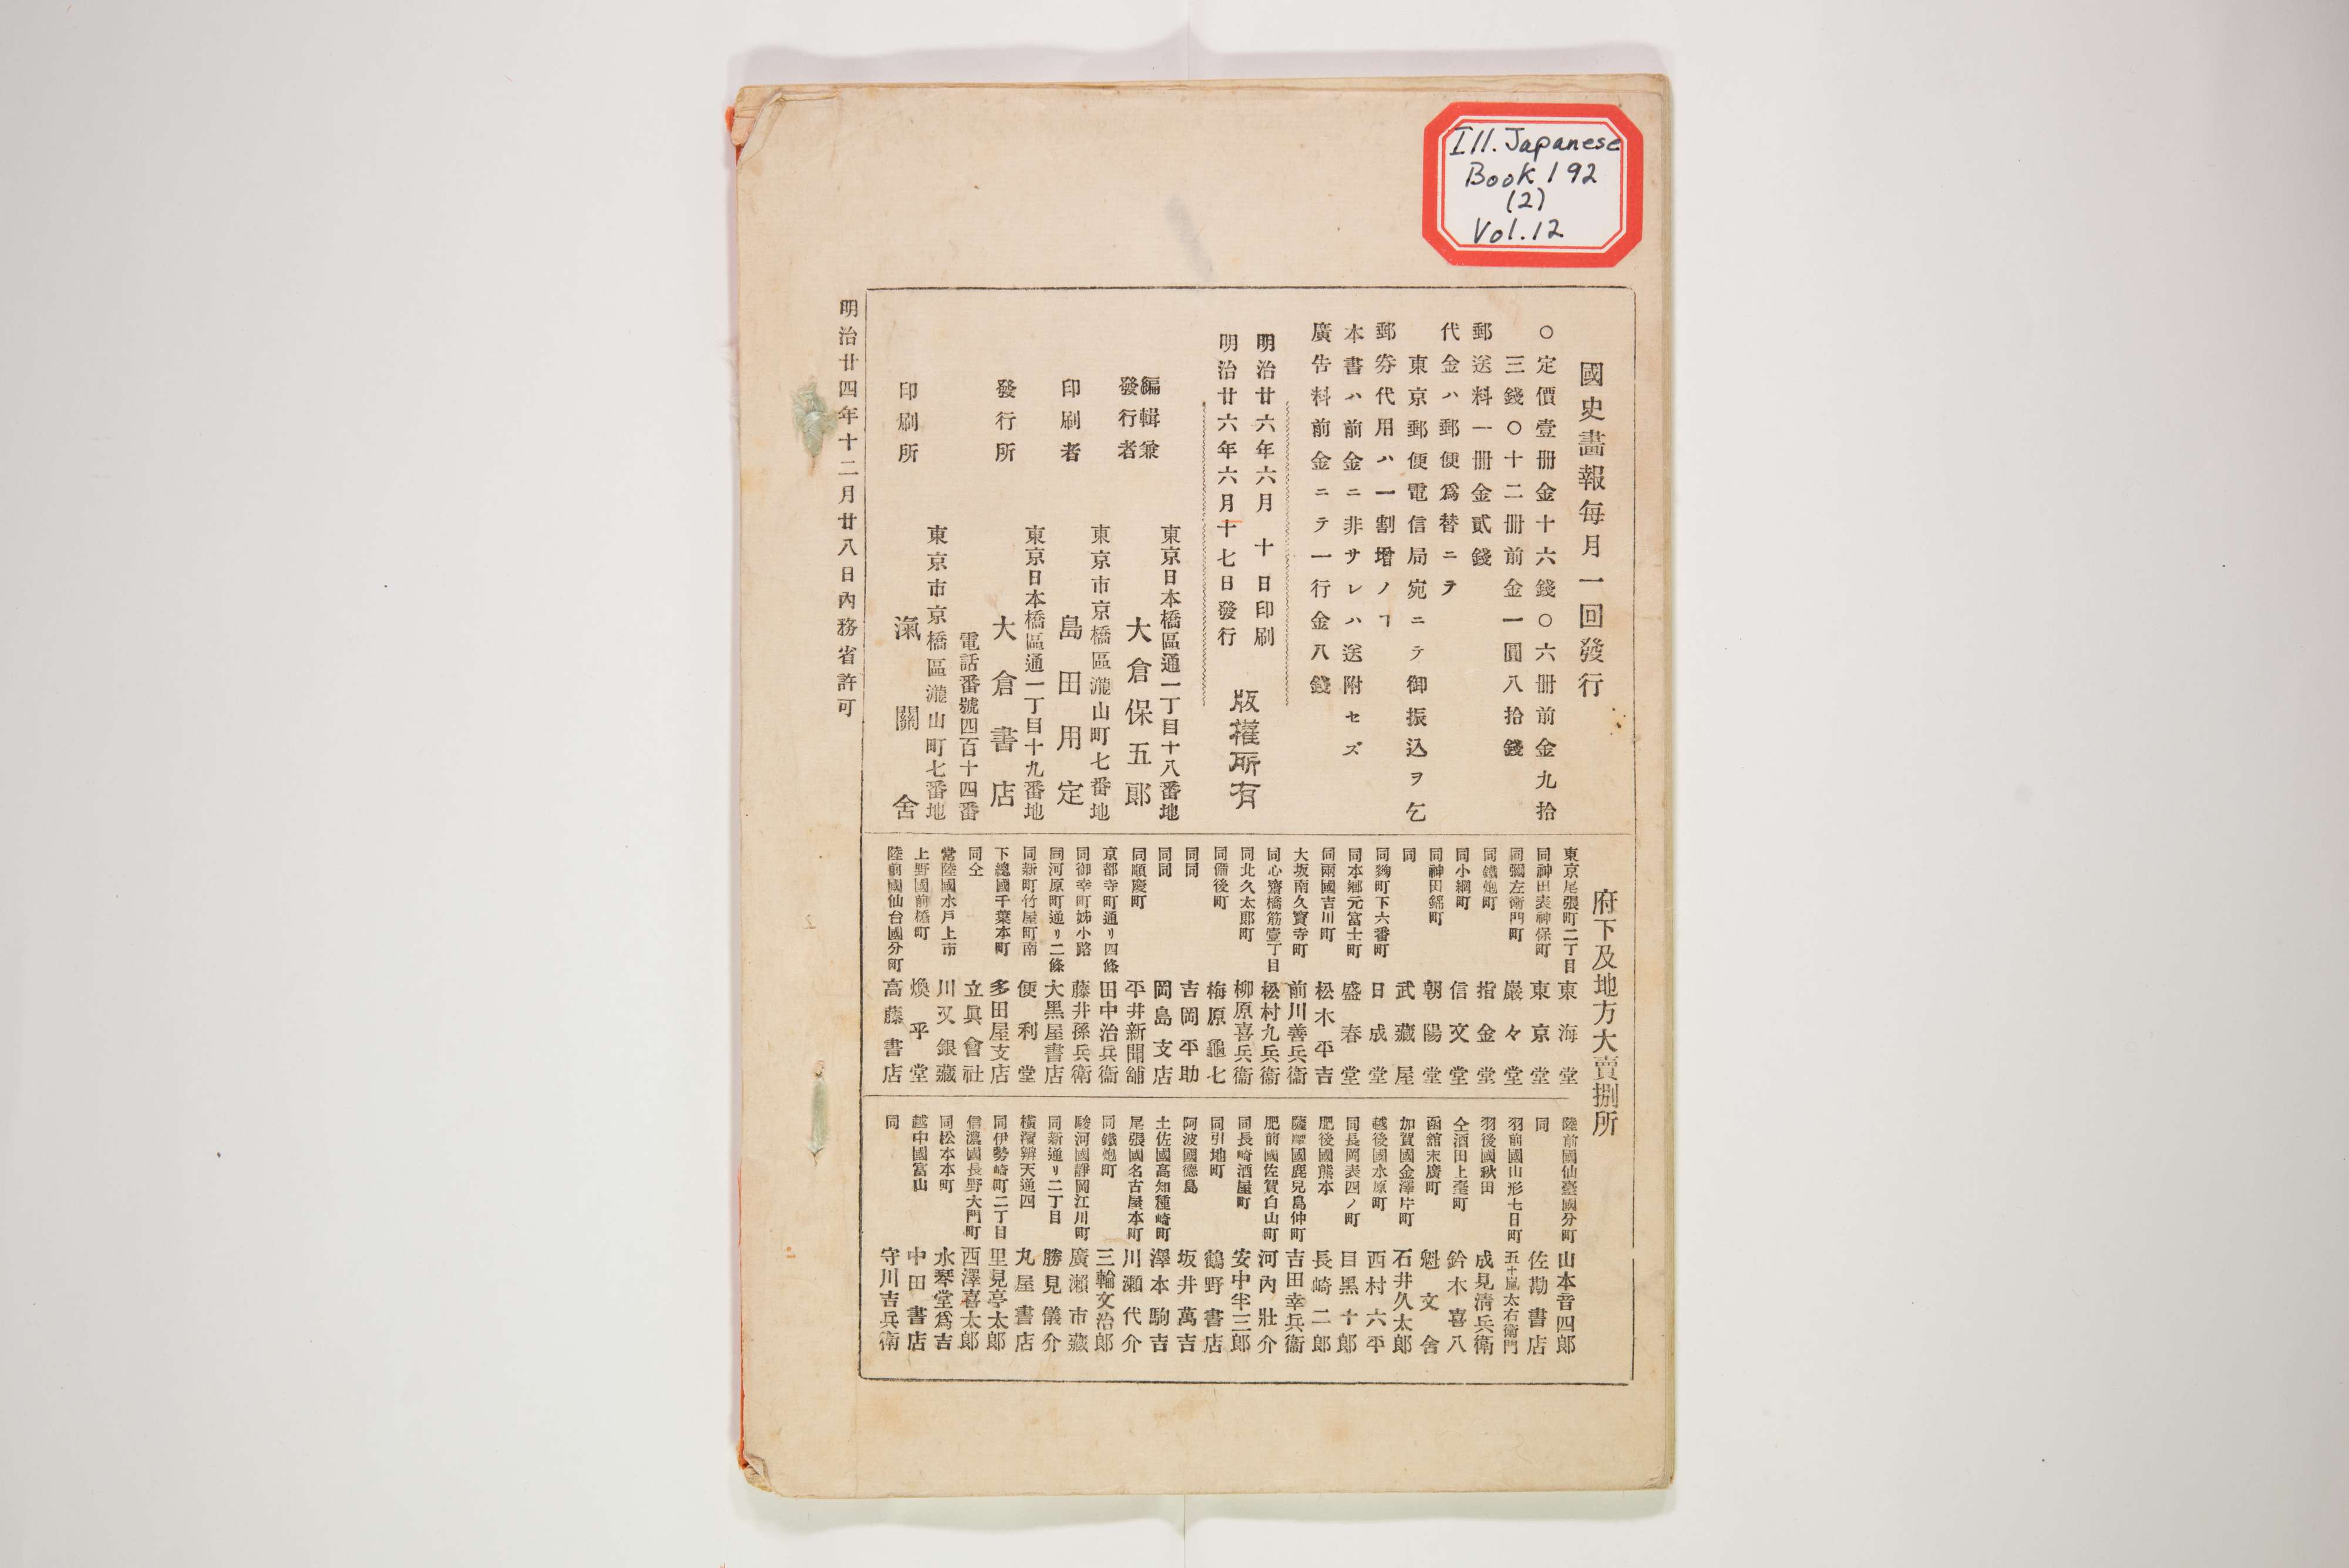 Ill. Japanese
Book 192
(2)
Vol. 12
國史畵報每月一回發行
○定價壹册金十六錢○六册前金九拾
三錢○十二册前金一圓八拾錢
郵送料一册金貳錢
代金ハ郵便爲替ニテ
東京郵便電信局宛ニテ御振込ヲ乞
郵劵代用ハ一割增ノヿ
本書ハ前金ニ非サレハ送附セズ
廣告料前金ニテ一行金八錢
明治廿六年六月 十 日印刷
明治廿六年六月十七日發行
版權所有
東京日本橋區通一丁目十八番地
編輯兼
發行者 大倉保五郎
東京市京橋區瀧山町七番地
印刷者 島田用定
東京日本橋區通一丁目十九番地
發行所 大倉書店
電話番號四百十四番
東京市京橋區瀧山町七番地
印刷所 滊關舍
明治廿四年十二月廿八日內務省許可
府下及地方大賣捌所
東京尾張町二丁目 東海堂
同神田表神保町 東京堂
同彌左衞門町 巖々堂
同鐵炮町 指金堂
同小網町 信文堂
同神田錦町 朝陽堂
同 武藏屋
同麴町下六番町 日成堂
同本鄕元富士町 盛春堂
同兩國吉川町 松木平吉
大坂南久寶寺町 前川善兵衞
同心齋橋筋壹丁目 松村九兵衞
同北久太郎町 柳原喜兵衞
同備後町 梅原龜七
同同 吉岡平助
同同 岡島支店
同順慶町 平井新聞舖
京都寺町通リ四條 田中治兵衞
同御幸町姊小路 藤井孫兵衞
同河原町通リ二條 大黑屋書店
同新町竹屋町南 便利堂
下總國千葉本町 多田屋支店
同仝 立眞會社
常陸國水戶上市 川又銀藏
上野國前橋町 煥乎堂
陸前國仙台國分町 高藤書店
陸前國仙臺國分町 山本音四郎
同 佐勘書店
羽前國山形七日町 五十嵐太右衞門
羽後國秋田 成見淸兵衞
仝酒田上臺町 鈴木喜八
函館末廣町 魁文舍
加賀國金澤片町 石井久太郎
越後國水原町 西村六平
同長岡表四ノ町 目黑十郎
肥後國熊本 長崎二郎
薩摩國鹿兒島仲町 吉田幸兵衞
肥前國佐賀白山町 河內壯介
同長崎酒屋町 安中半三郎
同引地町 鶴野書店
阿波國德島 坂井萬吉
土佐國高知種崎町 澤本駒吉
尾張國名古屋本町 川瀨代介
同鐵炮町 三輪文治郎
駿河國靜岡江川町 廣瀨市藏
同新通リ二丁目 勝見儀介
橫濱辨天通四 丸屋書店
同伊勢崎町二丁目 里見亭太郎
信濃國長野大門町 西澤喜太郎
同松本本町 水琴堂爲吉
越中國富山 中田書店
同 守川吉兵衞